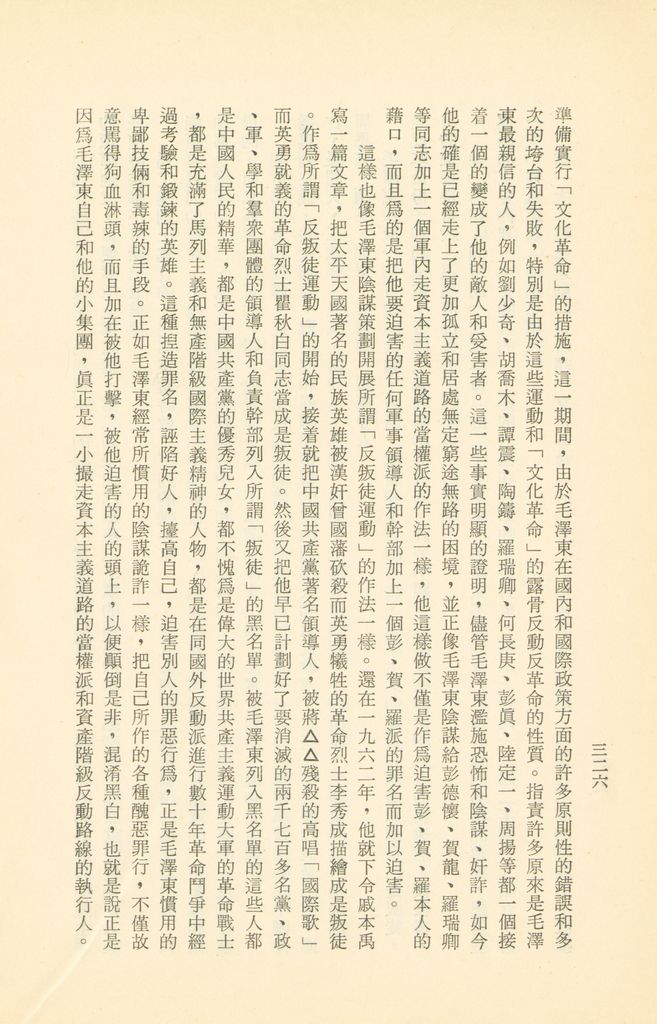 三二六
準備實行「文化革命」的措施，這一期間，由於毛澤東在國內和國際政策方面的許多原則性的錯誤和多
次的垮台和失敗，特別是由於這些運動和「文化革命」的露骨反動反革命的性質。指責許多原來是毛澤
東最親信的人，例如劉少奇、胡喬木、譚震、陶鑄、羅瑞卿、何長庚、彭眞、陸定一、周揚等都一個接
着一個的變成了他的敵人和受害者。這一些事實明顯的證明，儘管毛澤東濫施恐怖和陰謀、奸詐，如今
他的確是已經走上了更加孤立和居處無定窮途無路的困境，並正像毛澤東陰謀給彭德懷、賀龍、羅瑞卿
等同志加上一個軍內走資本主義道路的當權派的作法一樣，他這樣做不僅是作爲迫害彭、賀、羅本人的
藉口，而且爲的是把他要迫害的任何軍事領導人和幹部加上一個彭、賀、羅派的罪名而加以迫害。
這樣也像毛澤東陰謀策劃開展所謂「反叛徒運動」的作法一樣。還在一九六二年，他就下令戚本禹
寫一篇文章，把太平天國著名的民族英雄被漢奸曾國藩砍殺而英勇犧牲的革命烈士李秀成描繪成是叛徒
。作爲所謂「反叛徒運動」的開始，接着就把中國共產黨著名領導人，被蔣△△殘殺的高唱「國際歌」
而英勇就義的革命烈士瞿秋白同志當成是叛徒。然後又把他早已計劃好了要消滅的兩千七百多名黨、政
、軍、學和羣衆團體的領導人和負責幹部列入所謂「叛徒」的黑名單。被毛澤東列入黑名單的這些人都
是中國人民的精華，都是中國共產黨的優秀兒女，都不愧爲是偉大的世界共產主義運動大軍的革命戰士
，都是充滿了馬列主義和無產階級國際主義精神的人物，都是在同國外反動派進行數十年革命鬥爭中經
過考驗和鍛鍊的英雄。這種捏造罪名，誣陷好人，擡高自己，迫害別人的罪惡行爲，正是毛澤東慣用的
卑鄙技倆和毒辣的手段。正如毛澤東經常所慣用的陰謀詭詐一樣，把自己所作的各種醜惡罪行，不僅故
意罵得狗血淋頭，而且加在被他打擊，被他迫害的人的頭上，以便顚倒是非，混淆黑白，也就是說正是
因爲毛澤東自己和他的小集團，眞正是一小撮走資本主義道路的當權派和資產階級反動路線的執行人。